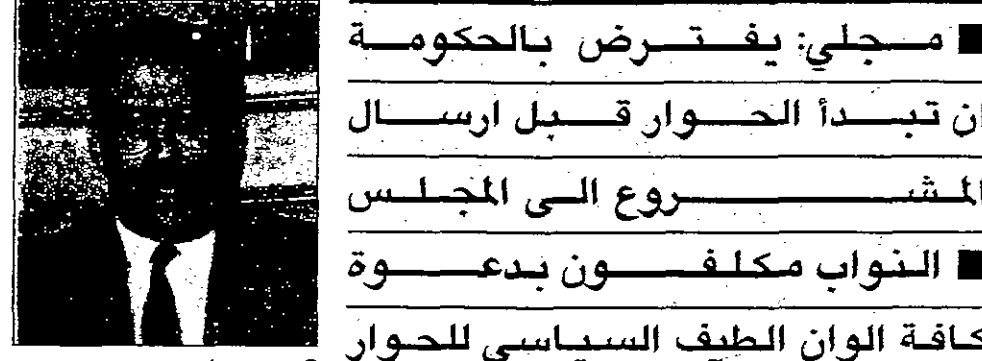 ■ مجلي: يفترض بالحكومة
ان تبدأ الحوار قبل ارسال
المشروع الى المجلس
■ النواب مكلفون بدعوة
كافة الوان الطيف السياسي للحوار